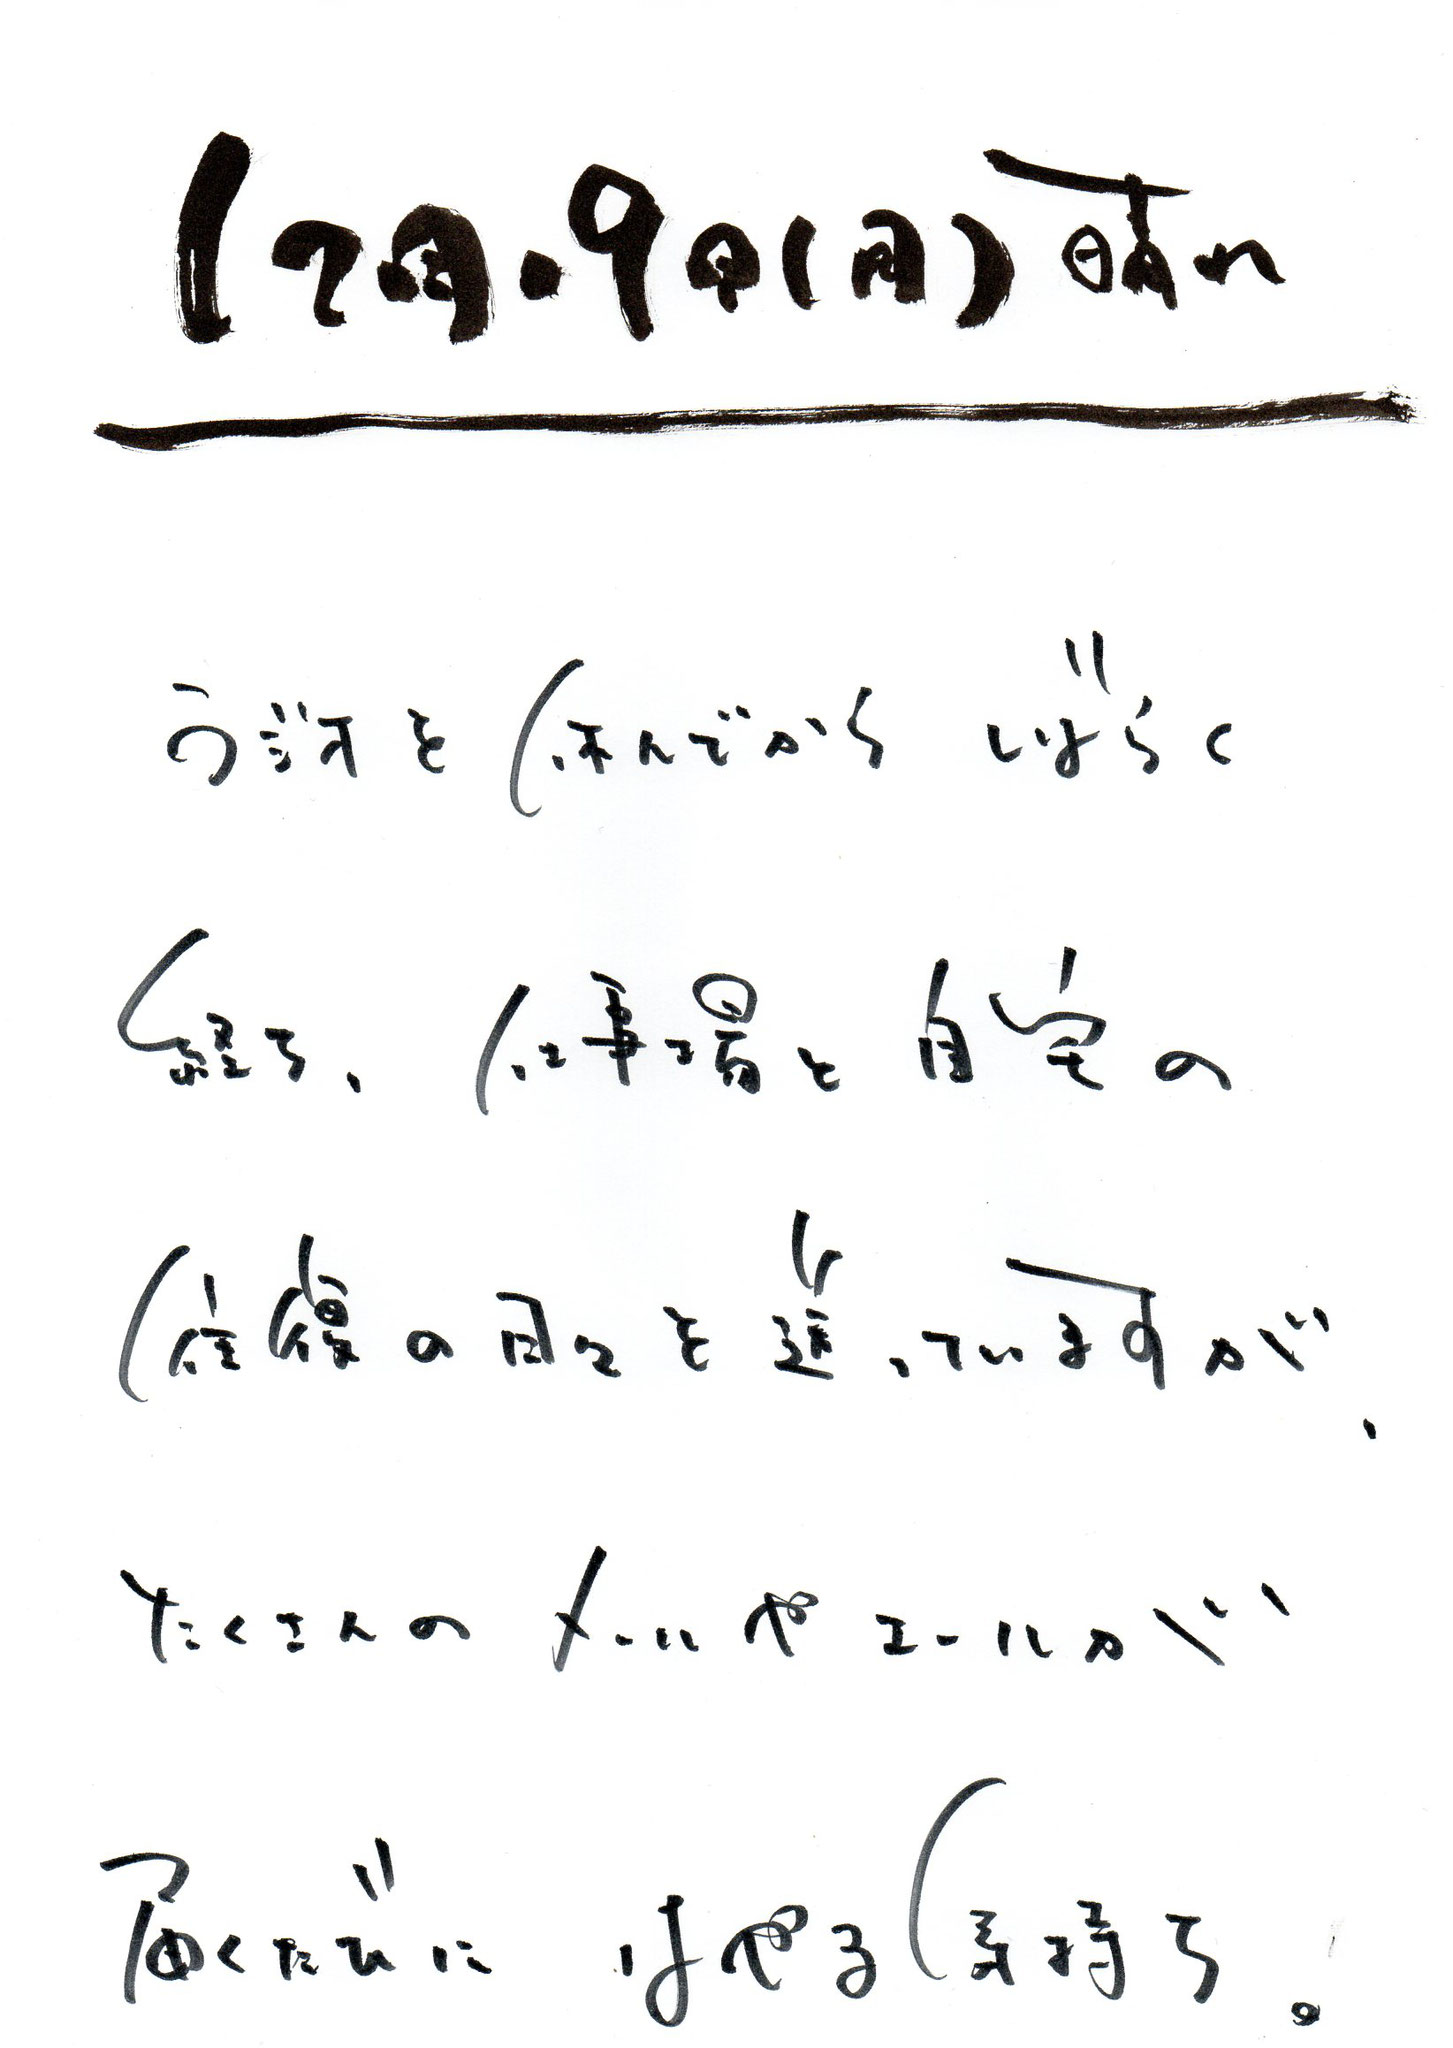 12月.9日(月)晴れ
ラジオを休んでからしばらく
経ち、仕事場と自宅の
往復の日々を送っていますが、
たくさんのメールやエールが
届くたびにはやる気持ち。